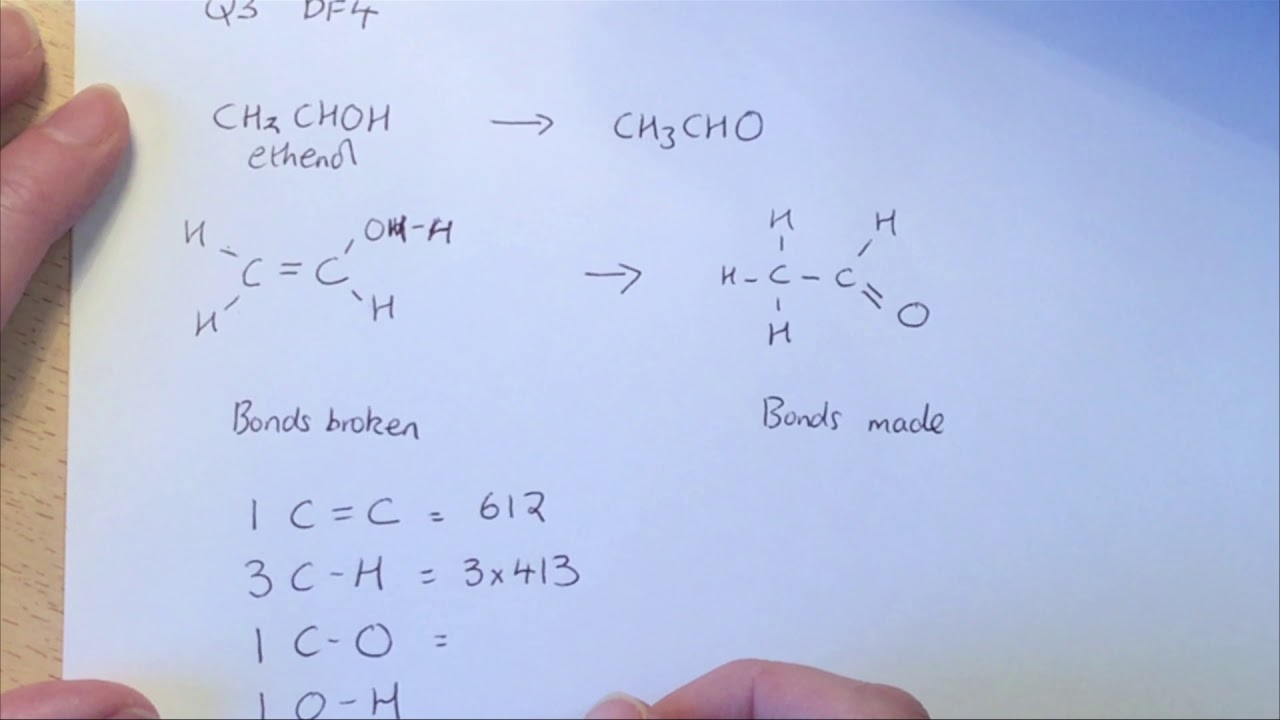 Q3 DF4
CH2 CHOH → CH3CHO
ethenol
H OH-H H H
C = C → H - C - C
H H H O
Bonds broken Bonds made
1 C = C = 612
3 C - H = 3x413
1 C - O =
1 O - H